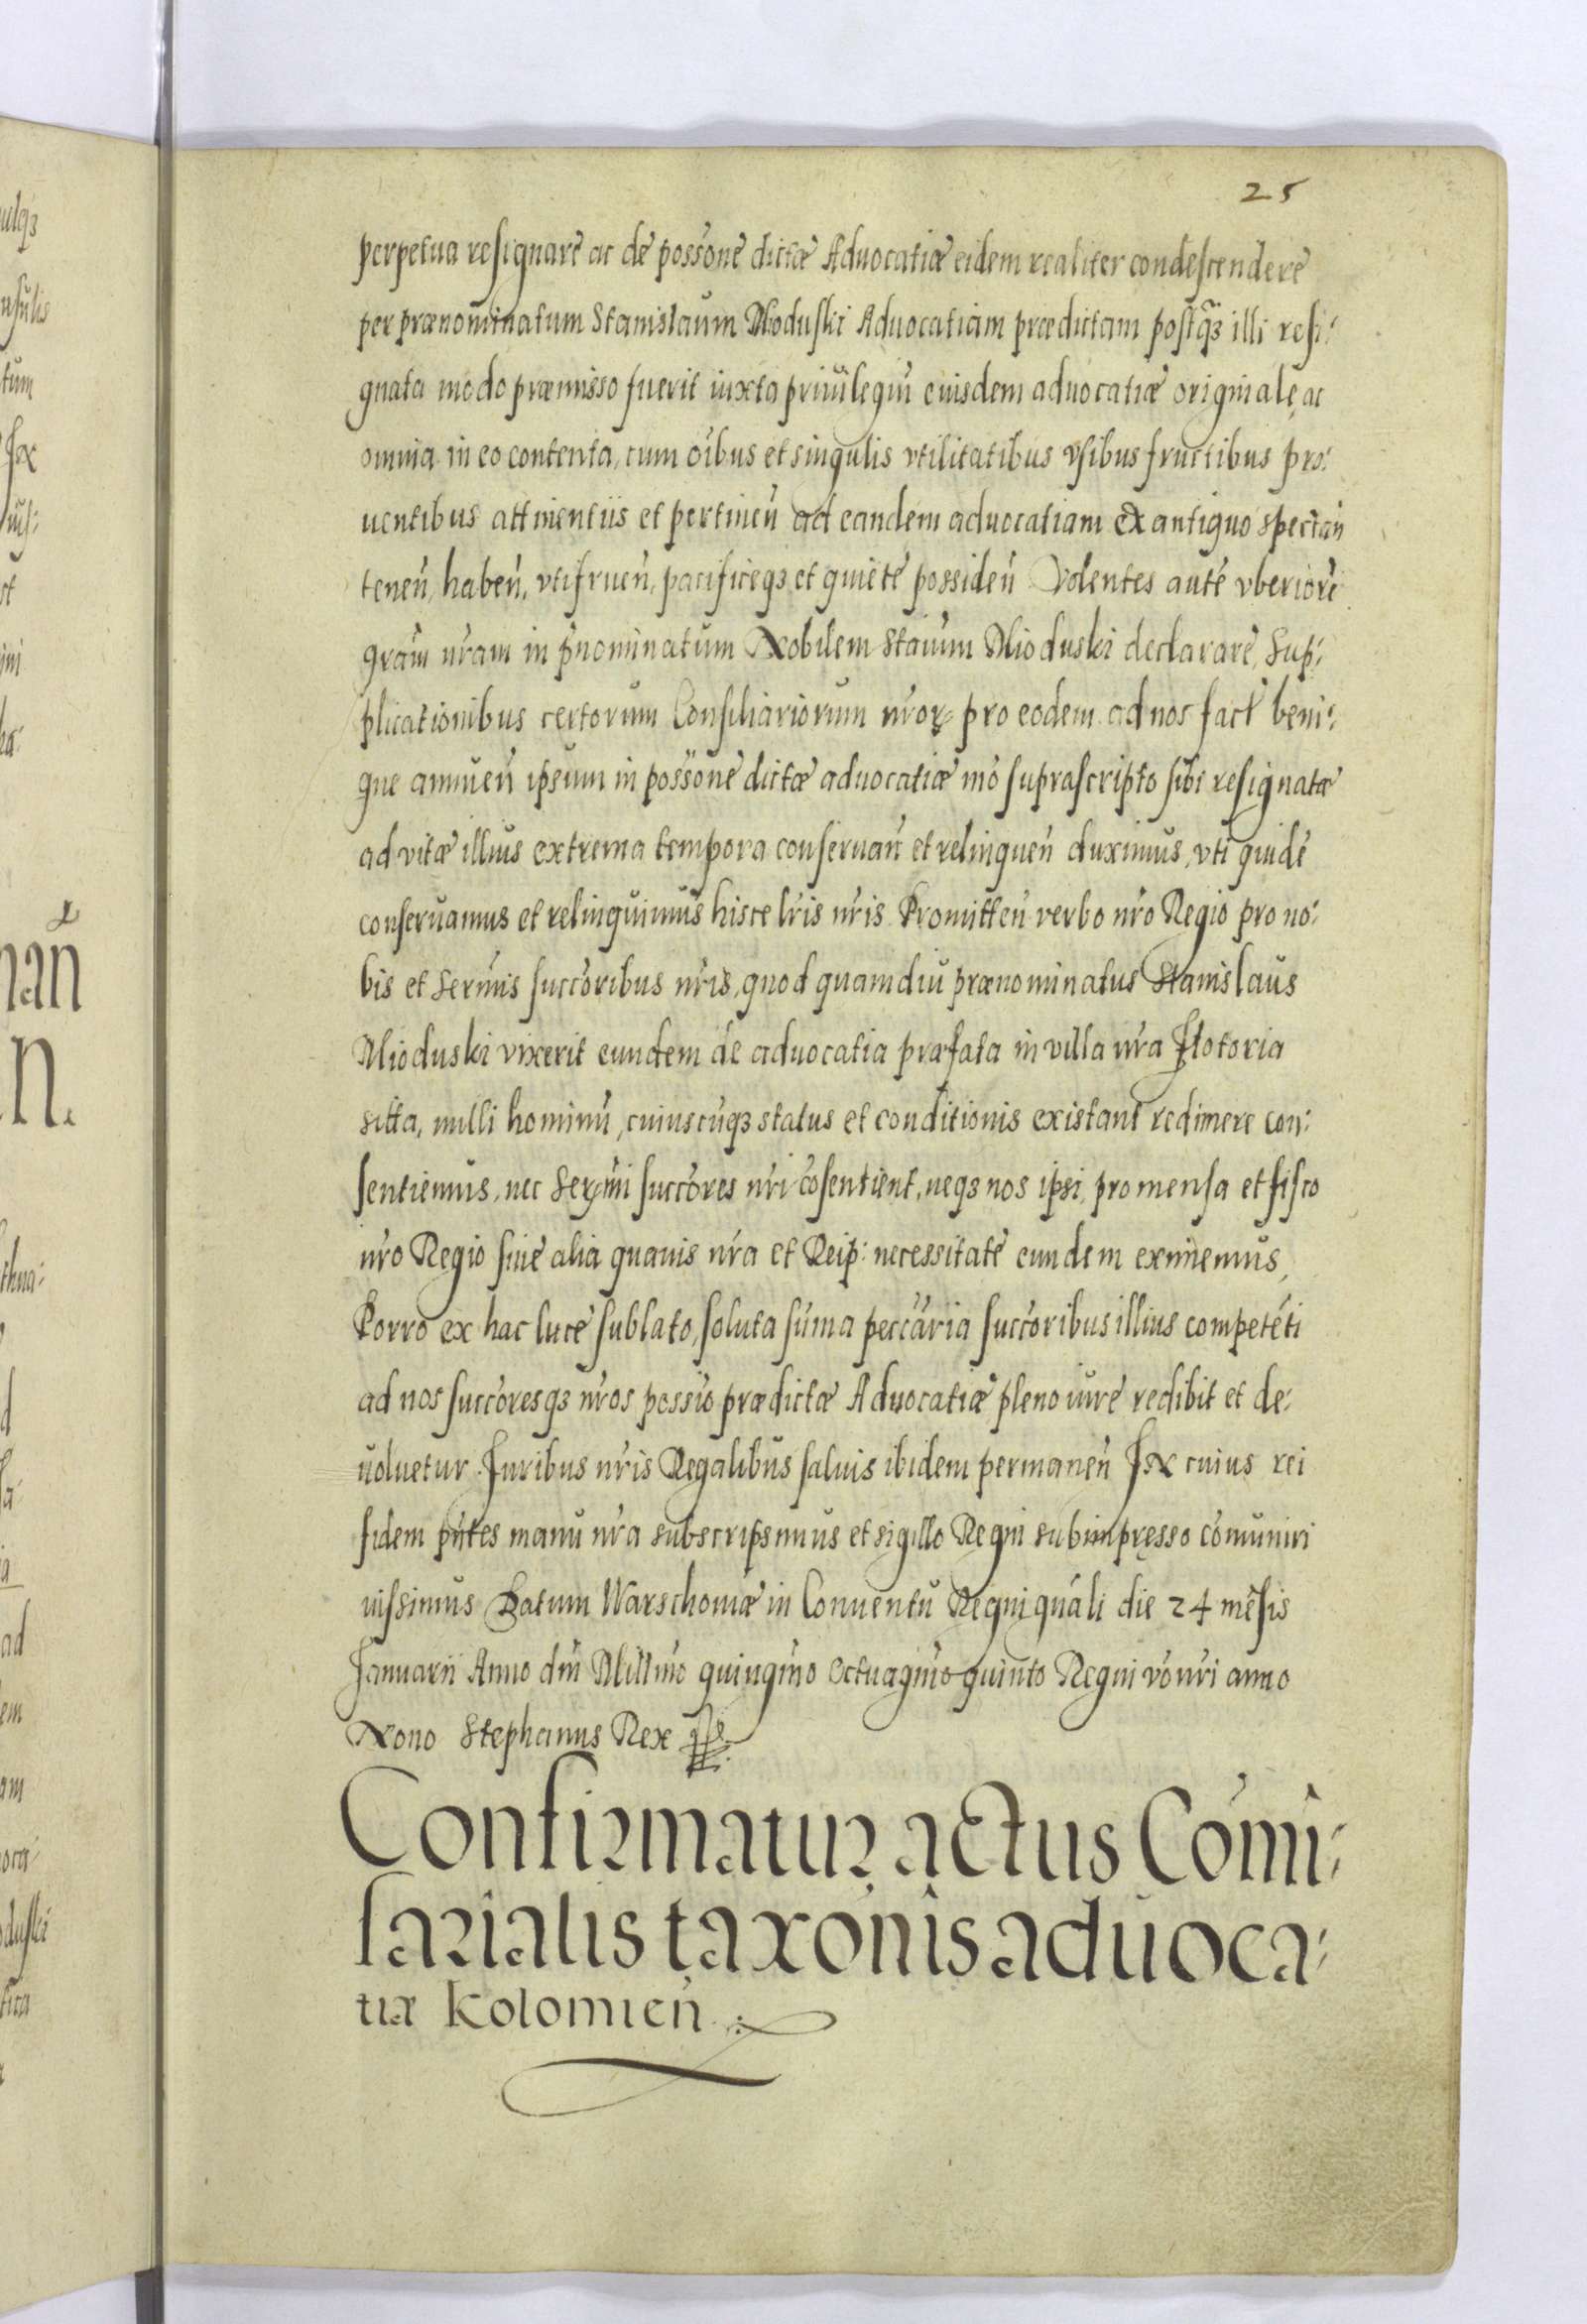 25
perpetua resignare ac de possone dictæ Aduocatiæ eidem realiter condescendere
per prænominatum Stanislaum Mioduski Aduocatiam prædictam postq̃ꝫ illi resi:
gnata modo præmisso fuerit iuxta priuilegiũ eiusdem aduocatiæ originale, ac
omnia in eo contenta, cum oĩbus et singulis vtilitatibus vsibus fructibus pro:
uentibus attinentiis et pertineñ ad eandem aduocatiam ex antiquo spectañ
teneñ, habeñ, vtifrueñ, pacificeqꝫ et quiete possideñ Volentes autẽ vberiorẽ
gr̃am nr̃am in p̃nominatum Nobilem Sta͠um Mioduski declarare, Sup:
plicationibus certorum Consiliariorum nr̃oꝝ pro eodem ad nos fact̃ beni:
gne annueñ ipsum in possone dictæ aduocatiæ mõ suprascripto sibi resignatæ
ad vitæ illius extrema tempora conseruañ et relinqueñ duximus, vti quidẽ
conseruamus et relinquimus hisce lr̃is nr̃is Promitteñ verbo nr̃o Regio pro no:
bis et Serm̃is succõribus nr̃is, quod quamdiu prænominatus Stanislaus
Mioduski vixerit eundem de aduocatia præfata in villa nr̃a Flotoria
sitta, nulli hominũ, cuiuscũqꝫ status et conditionis existant redimere con:
sentiemus, nec Serm̃i succõres nr̃i cõsentient, neqꝫ nos ipsi, pro mensa et fisco
nr̃o Regio siue alia quauis nr̃a et Reip: necessitate eundem eximemus,
Porro ex hac luce sublato, soluta sũma pecc̃aria succõribus illius competẽti
ad nos succõresqꝫ nr̃os possio prædictæ Aduocatiæ pleno iure redibit et de:
uoluetur Iuribus nr̃is Regalibus saluis ibidem permaneñ In cuius rei
fidem pñtes manu nr̃a subscripsimus et sigillo Regni subimpresso cõmuniri
iussimus Datum Warschouiæ in Conuentu Regni gñali die 24 mẽsis
Januarii Anno dñi Millmo quingmo octuagmo quinto Regni vo nr̃i anno
Nono Stephanus Rex
Confirmatur actus Com̃i:
sarialis taxõnis aduoca:
tiæ Kolomieñ